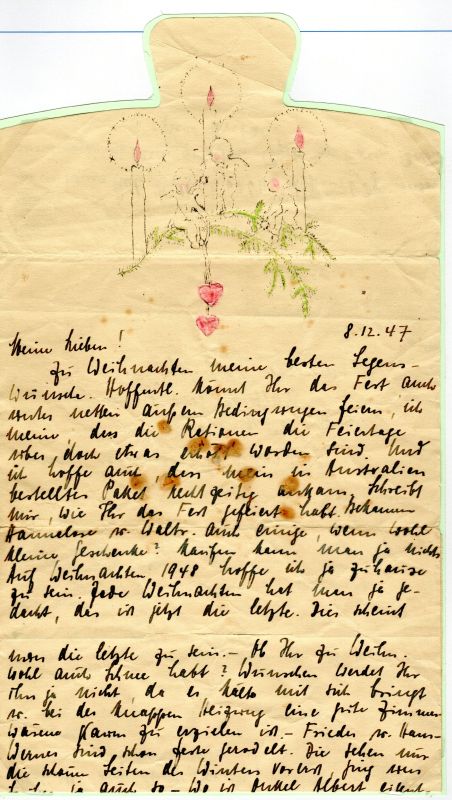 Meine Lieben! 8.12.47
Zu Weihnachten meine besten Segens-
wünsche. Hoffentl. könnt Ihr das Fest auch
unter netten äußern Bedingungen feiern, ich
meine, dass die Rationen die Feiertage
über doch etwas erhöht worden sind. Und
ich hoffe auch, dass mein in Australien
bestelltes Paket rechtzeitig ankam. Schreibt
mir, wie Ihr das Fest gefeiert habt. Bekamen
Hannelore u. Waltr. auch einige, wenn wohl
kleine Geschenke? Kaufen kann man ja nichts
Auf Weihnachten 1948 hoffe ich ja zuhause
zu sein. Jede Weihnachten hat man ja ge-
dacht, das ist jetzt die letzte. Dies scheint
die letzte zu sein. – Ob Ihr zu Weihn.
wohl auch Schnee habt? Wünschen werdet Ihr
ihn ja nicht, da es Kälte mit sich bringt
u. bei der knappen Heizung eine gute Zimmer-
wärme kaum zu erzielen ist. – Friedel u. Hans-
Werner sind schon feste gerodelt. Die sehen nur
die schönen Seiten des Winters vorerst, ging uns
ja auch so – Wo ist Onkel Albert eigent.